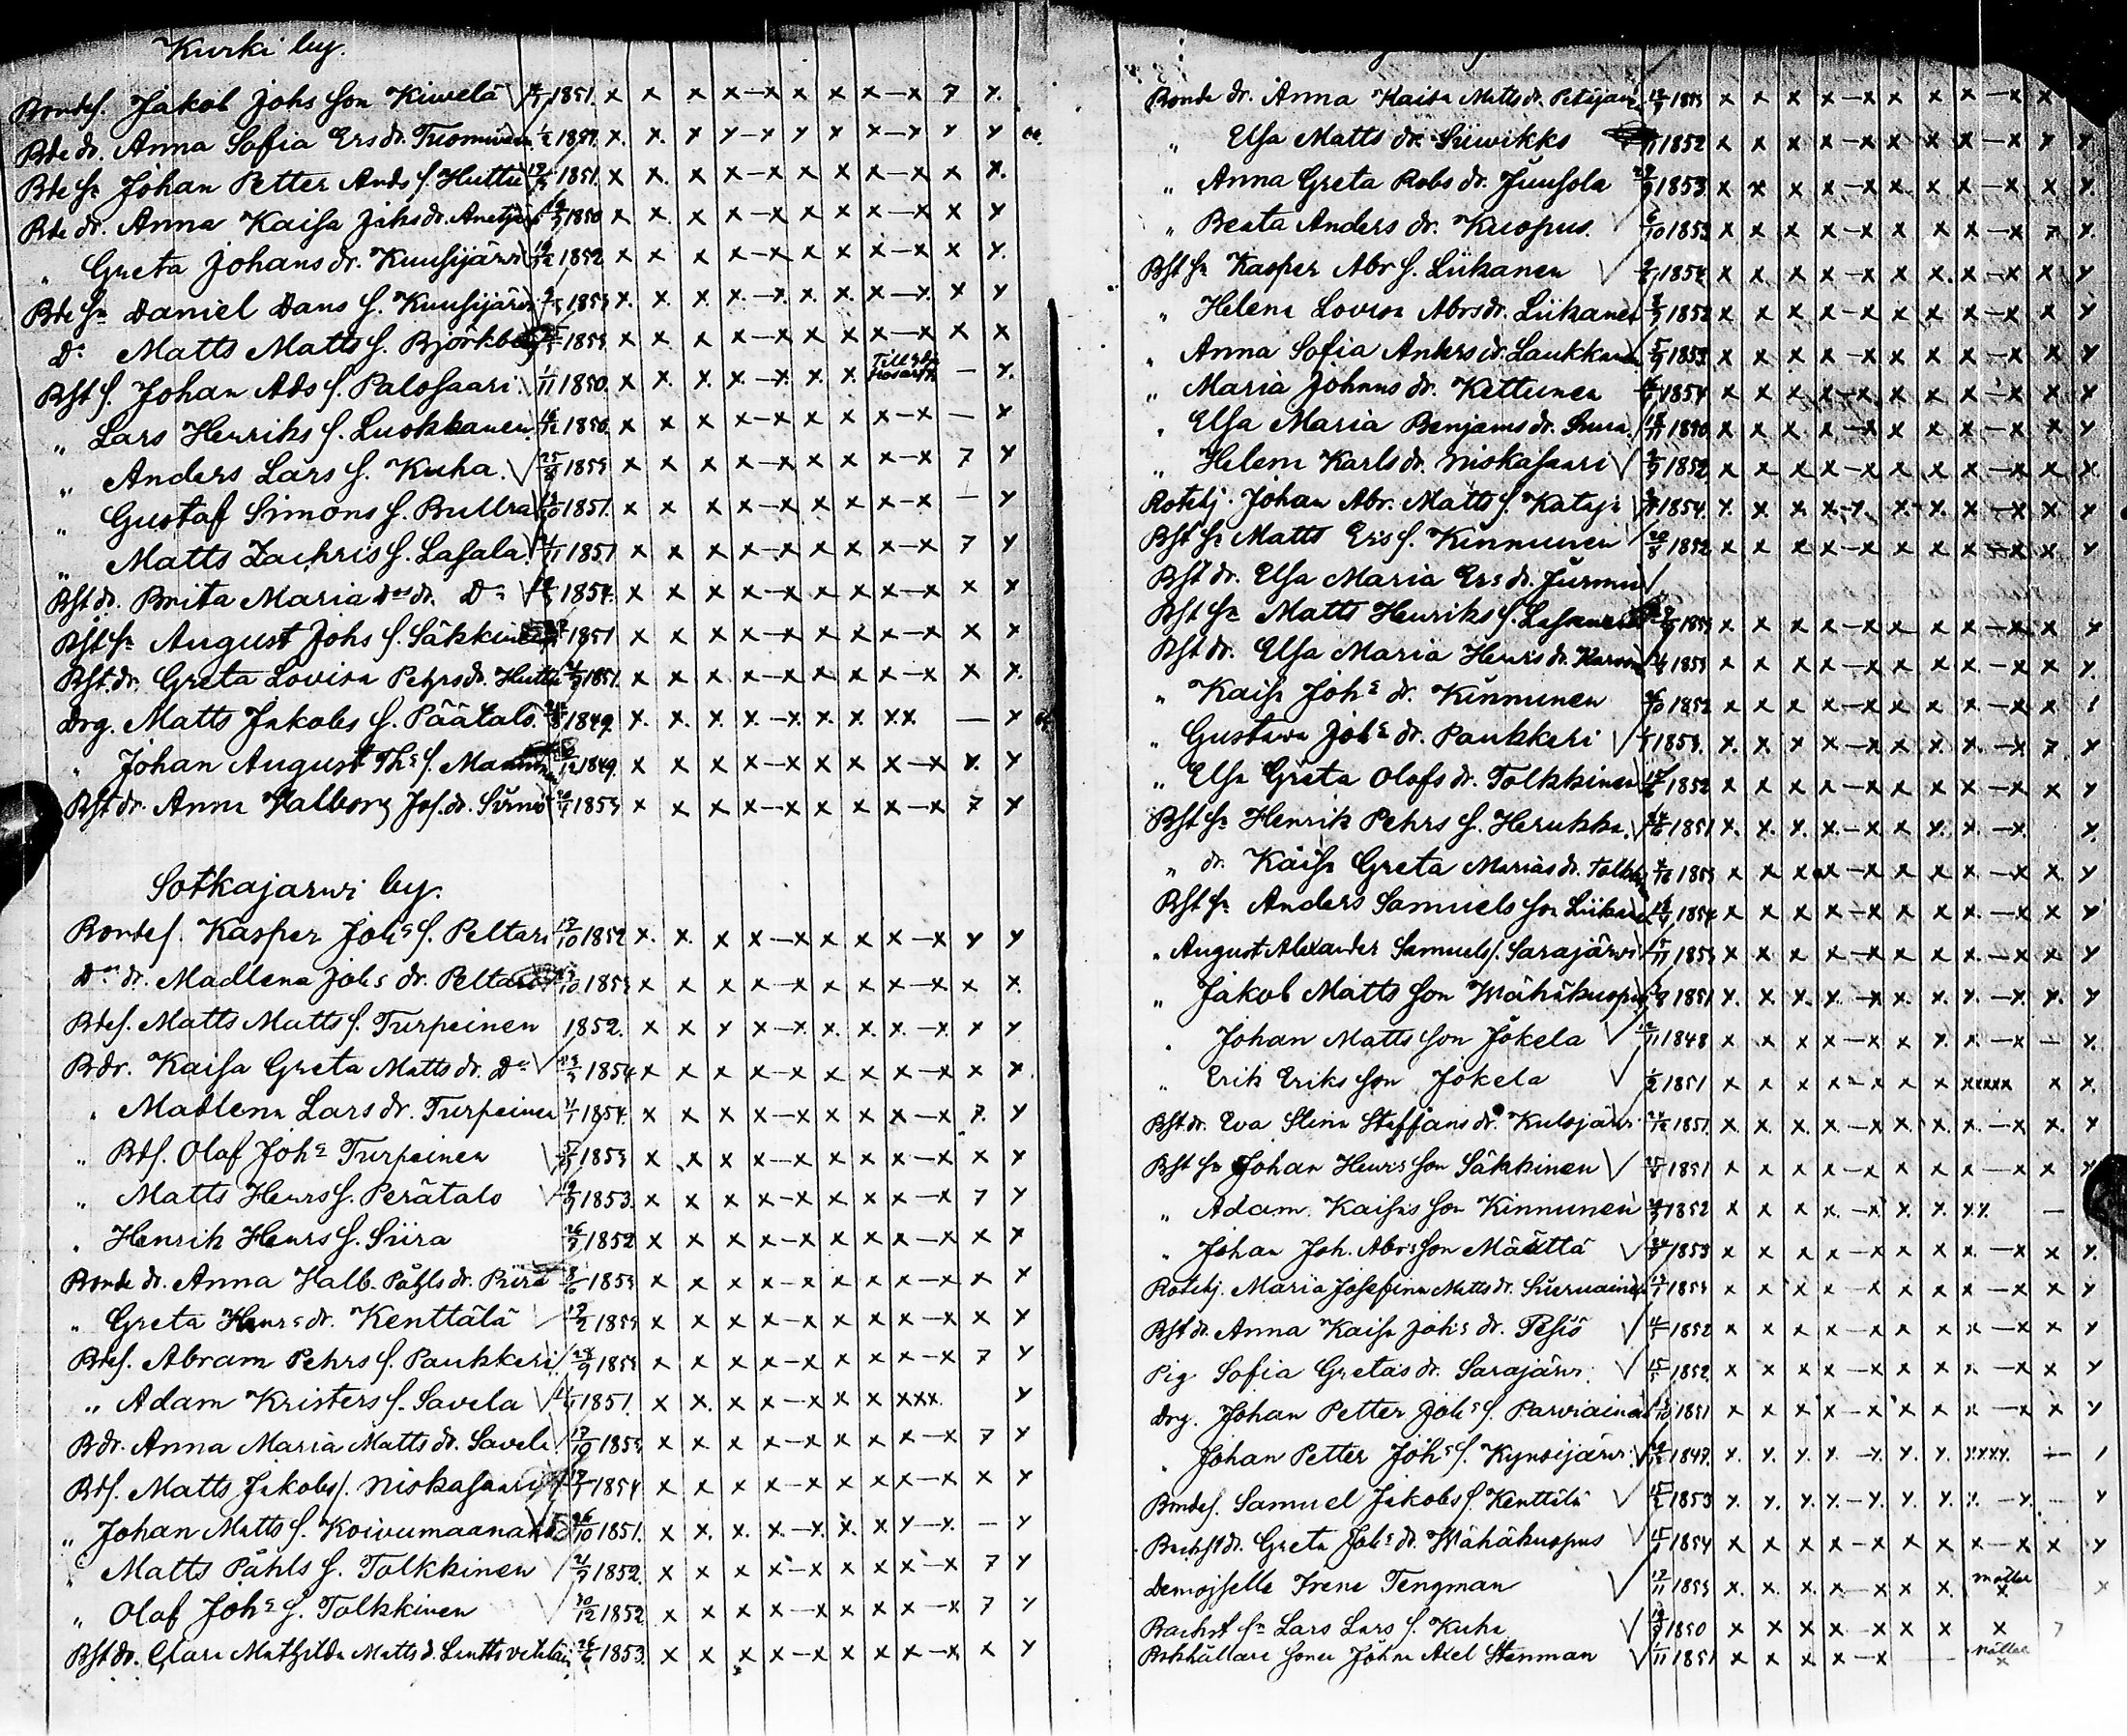 Kurki by.
Bondes. Jakob Johs son Kiwelä 1851. x x x x—x x x x—x 7 x.
Bde dr. Anna Sofia Ers dr. x. x. x x—x x x x—x x x
Bde sn Johan Petter Ands s. Huttu 1851. x x. x x—x x x x—x x x.
Bde dr. Anna Kaisa Johs dr. 1850 x x. x x—x x x x—x x x
„ Greta Johans dr. Kuusijärvi 1852 x x. x x—x x x x—x x x.
Bde sn Daniel Dans s. Kuusijärvi x. x. x. x.—x. x. x. x—x. x x
Do Matts Matts s. Björkberg x x x x—x x x x—x x x
Bst s. Johan Ads s. Palosaari 1/11 1850. x x. x. x.—x. x. x. — x.
„ Lars Henriks s. Luokkanen. 1850. x x x x—x x x x—x — x
„ Anders Lars s. Kuha. 25/8 x x x x—x x x x—x 7 x
„ Gustaf Simons s. Bullra 1851. x x x x—x x x x—x — x
„ Matts Zachris s. Lasala. 1851 x x x x—x x x x—x 7 x
Bst dr. Brita Maria Dos dr. Do 1854. x x x x—x x x x—x x x
Bst sn August Johs s. Säkkinen 1851 x x x x—x x x x—x x x
Bst. dr. Greta Lovisa Pehrs dr. Huttu 1851. x x x x—x x x x—x x x.
Drg. Matts Jakobs s. Päätalo. 1849. x. x. x. x.—x x. x xx — x
„ Johan August Ths s. 1849. x x x x—x x x x—x x. x
Bst dr. Anna Walborg Jos. dr. x x x x—x x x x—x 7 x
Sotkajarwi by.
Bondes. Kasper Johs s. Peltari 17/10 1852 x. x. x x—x x x x—x x x
Do dr. Madlena Johs dr. Peltari x x x x—x x x x—x x x.
Bdes. Matts Matts s. Turpeinen 1852. x x x x—x. x. x. x.—x. x x
Bdr. Kaisa Greta Matts dr. Do 1854 x x x x—x x x x—x x x
„ Madlena Lars dr. Turpeinen 1854. x x x x—x x x x—x 7. x
„ Bds. Olaf Johs Turpeinen x x x x—x x x x—x x x
„ Matts Henrs s. Perätalo 1853. x x x x—x x x x—x 7 x
„ Henrik Henrs s. Siira 1852 x x x x—x x x x—x x x
Bonde dr. Anna Walb. Påhls dr. x x x x—x x x x—x x x
„ Greta Henrs dr. Kenttälä 19/2 x x x x—x x x x—x x x
Bdes. Abram Pehrs s. Paukkeri 28/9 x x x x—x x x x—x 7 x
„ Adam Kristers s. Savela 1851. x x. x x—x x x xxx. x
Bdr. Anna Maria Matts dr. Savela 17/10 x x x x—x x x x—x 7 x
Bds. Matts Jakobs s. Niskasaari 1854 x x x x—x x x x—x x x
„ Johan Matts s. Koivumaanaho 26/10 1851. x x. x. x.—x. x. x x—x. — x
„ Matts Påhls s. Tolkkinen 1852. x x x x—x x x x—x 7 x
„ Olaf Johs s. Tolkkinen 30/12 1852 x x x x—x x x x—x 7 x
Bst dr. Clara Mathilda Matts d. 1853. x x x x—x x x x—x x x
Bonde dr. Anna Kaisa Matts dr. x x x x—x x x x—x x
„ Elsa Matts dr. Siiwikko 1852 x x x x—x x x x—x x x
„ Anna Greta Robs dr. Juusola 1853 x x x x—x x x x—x x x
„ Beata Anders dr. Kuopus. 6/10 1853 x x x x—x x x x—x 7 x.
Bst sn Kasper Abr s. Liikanen 1854 x x x x—x x x. x—x x x
„ Helena Lovisa Abrs dr. Liikanen 1852 x x x x—x x x x—x x x
„ Anna Sofia Anders dr. Laukkanen 1853 x x x x—x x x x—x x x
„ Maria Johans dr. Kettunen 1854 x x x x—x x x x—x x x
„ Elsa Maria Benjams dr. 1850 x x x. x—x x x x—x x x
„ Helena Karls dr. Niskasaari 1852 x x x x—x x x x—x x x
Rotebj. Johan Abr. Matts s. Kataja 1854. x. x. x x—x. x. x. x.—x x x
Bst sn Matts Ers s. Kinnunen 1852 x x x x—x x x x—x x x
Bst dr. Elsa Maria Ers dr. Jurmu
Bst sn Matts Henriks s. x x x x—x x x x—x x x
Bst dr. Elsa Maria Henrs dr. x x x x—x x x x—x x x
„ Kaisa Johs dr. Kinnunen 1852 x x x x—x x x x—x x
„ Gustava Johs dr. Paukkeri x. x x x—x x x x.—x 7. x
„ Elsa Greta Olofs dr. Tolkkinen 1852 x x x x—x x x x—x x x
Bst sn Henrik Pehrs s. Herukka. 1851 x. x. x. x.—x x x. x.—x x.
„ dr. Kaisa Greta Marias dr. x x x x—x x x x.—x x. x
Bst sn Anders Samuels son Liikanen 1854 x x x x—x x x x.—x x x
„ August Alexander Samuels s. Sarajärvi x x x x—x x x x.—x x x
„ Jakob Matts son Wähäkuopus 1851 x. x. x. x.—x x. x. x.—x. x. x
„ Johan Matts son Jokela 12/11 1848 x x x x—x x x. x.—x — x.
„ Erik Eriks son Jokela 1/2 1851 x x x x—x x x xxxxx x x.
Bst dr. Eva Stina Staffans dr. 24/12 1851. x. x. x. x—x x. x. x.—x x. x
Bst sn Johan Henrs son Säkkinen 1851 x x x x—x x x x—x x x
„ Adam Kaisas son Kinnunen 1852 x x x x.—x. x. x. xx. —
„ Johan Joh. Abrs son Määttä 1853 x x x x—x x x x.—x x x.
Rotebj. Maria Josefina Matts dr. x x x x—x x x x—x x x
Bst dr. Anna Kaisa Johs dr. Pesiö 1852 x x x x—x x x x—x x x
Pig Sofia Gretas dr. Sarajärvi. 1852 x x x x—x x x x—x x x
Drg. Johan Petter Johs s. Parviainen 1851 x x x x—x x x x—x x x
„ Johan Petter Johs s. Kynsijärvi. 1849. x. x. x. x.—x. x. x. xxxx. —
Bondes. Samuel Jakobs s. Kenttälä 1853 x. x. x. x.—x. x. x. x.—x. — x
Backst dr. Greta Johs dr. Wähäkuopus 1854 x x x x—x x x x—x x x
Demoiselle Irene Tengman x. x. x. x—x x x. x x
Backst sn Lars Lars s. Kuha 1850 x x x x—x x x x 7
Bokhållare sonen Johan Axel Stenman 1/11 1851 x x x x—x x